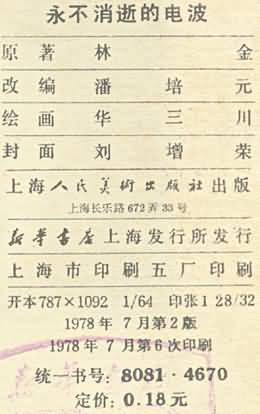 永不消逝的电波
原著 林 金
改编 潘培元
绘画 华三川
封面 刘增荣
上海人民美術出版社出版
上海长乐路672弄33号
新华書店上海发行所发行
上海市印刷五厂印刷
开本787×1092 1/64 印张1 28/32
1978年7月第2版
1978年7月第6次印刷
统一书号：8081·4670
定价：0.18元